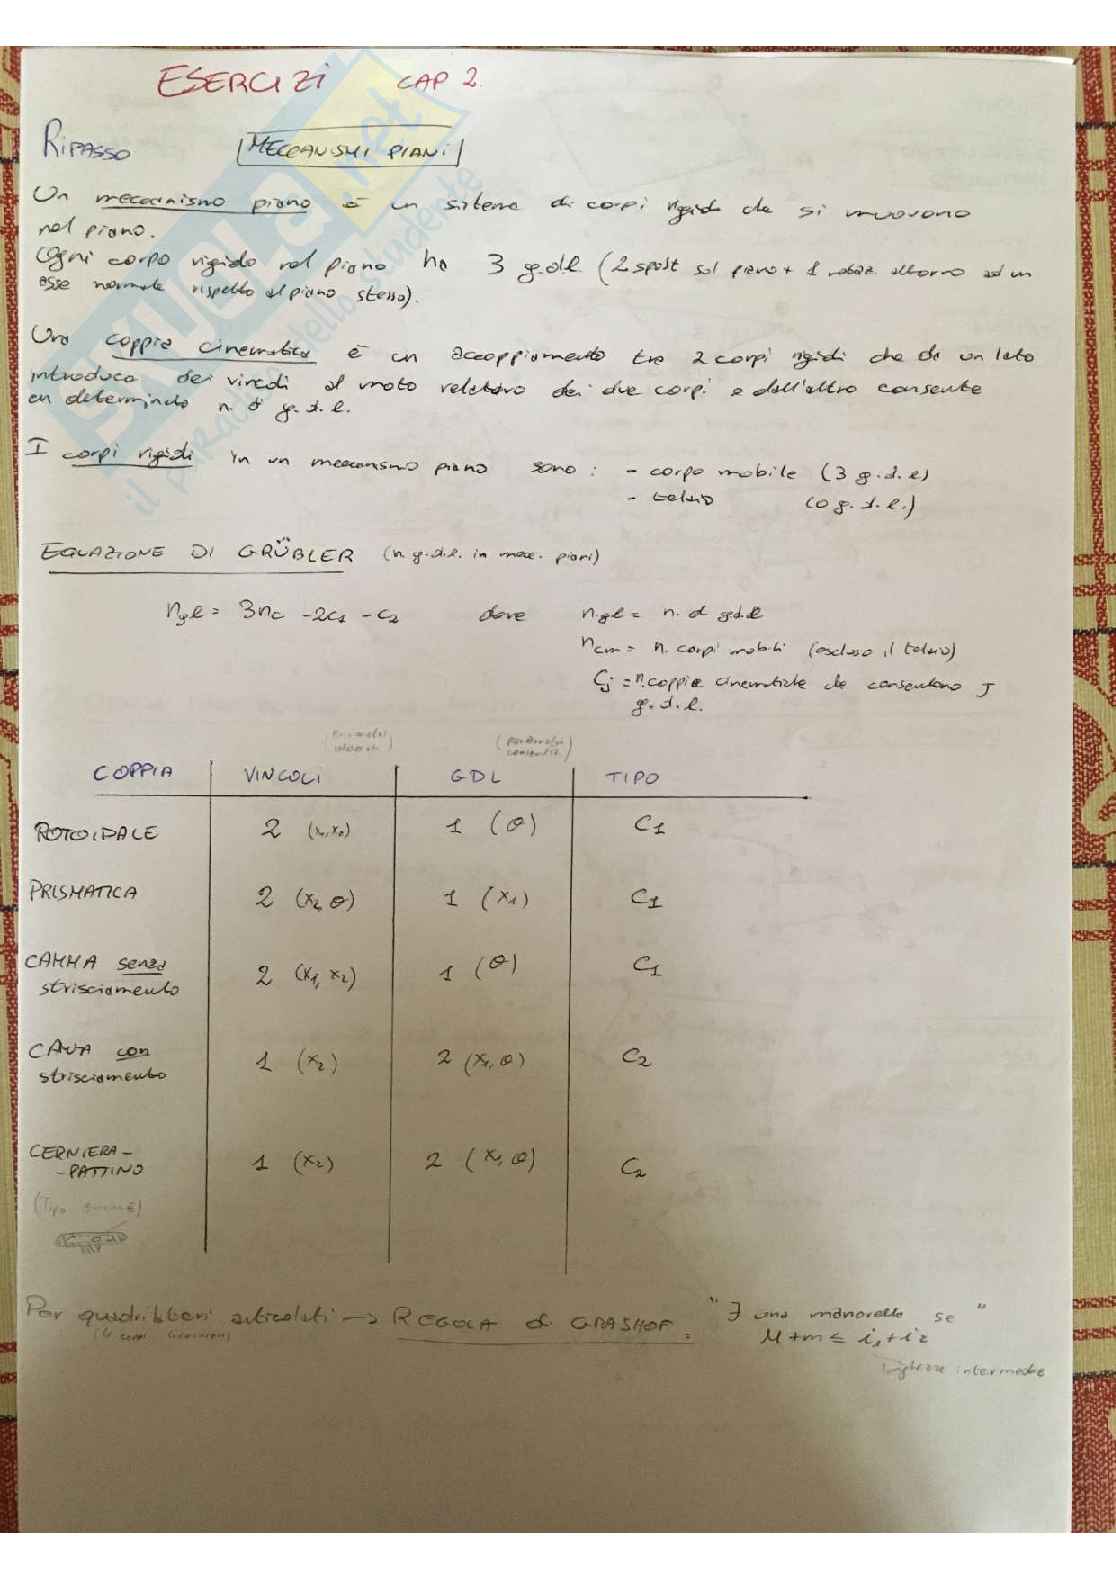 ESERCIZI CAP 2.
RIPASSO MECCANISMI PIANI
Un meccanismo piano è un sistema di corpi rigidi che si muovono
nel piano.
Ogni corpo rigido nel piano ha 3 g.d.l (2 spost sul piano + 1 rotaz attorno ad un
asse normale rispetto al piano stesso).
Una coppia cinematica è un accoppiamento tra 2 corpi rigidi che da un lato
introduce dei vincoli al moto relativo dei due corpi e dall'altro consente
un determinato n. di g.d.l.
I corpi rigidi in un meccanismo piano sono : - corpo mobile (3 g.d.l)
- telaio (0 g.d.l.)
EQUAZIONE DI GRÜBLER (n. g.d.l. in mecc. piani)
ngl = 3nc -2c1 -c2 dove ngl = n. di gdl
ncm = n. corpi mobili (escluso il telaio)
Cj = n. coppie cinematiche che consentono J
g.d.l.
(parametri
consentiti)
COPPIA VINCOLI GDL TIPO
ROTOIDALE 2 (x1,x2) 1 (θ) C1
PRISMATICA 2 (x2 θ) 1 (x1) C1
CAMMA senza
strisciamento 2 (x1, x2) 1 (θ) C1
CAMMA con
strisciamento 1 (x2) 2 (x1, θ) C2
CERNIERA-
-PATTINO 1 (x2) 2 (x1, θ) C2
(Tipo
Per quadrilateri articolati -> REGOLA di GRASHOF. "∃ una manovella se "
M + m ≤ i1 + i2
lunghezze intermedie
SKUOLA.net
il paradiso dello studente